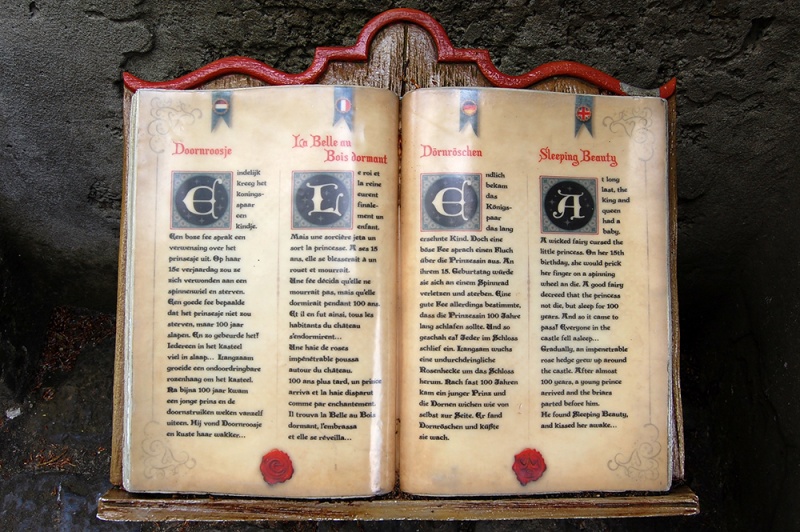 Doornroosje
Eindelijk
kreeg het
konings-
paar
een
kindje.
Een boze fee sprak een
verwensing over het
prinsesje uit. Op haar
15e verjaardag zou ze
zich verwonden aan een
spinnewiel en sterven.
Een goede fee bepaalde
dat het prinsesje niet zou
sterven, maar 100 jaar
slapen. En zo gebeurde het!
Iedereen in het kasteel
viel in slaap... Langzaam
groeide een ondoordringbare
rozenhaag om het kasteel.
Na bijna 100 jaar kwam
een jonge prins en de
doornstruiken weken vanzelf
uiteen. Hij vond Doornroosje
en kuste haar wakker...
La Belle au
Bois dormant
Le roi et
la reine
eurent
finale-
ment un
enfant.
Mais une sorcière jeta un
sort la princesse. A ses 15
ans, elle se blesserait à un
rouet et mourrait.
Une fée décida qu'elle ne
mourrait pas, mais qu'elle
dormirait pendant 100 ans.
Et il en fut ainsi, tous les
habitants du château
s'endorment...
Une haie de roses
impénétrable poussa
autour du château.
100 ans plus tard, un prince
arriva et la haie disparut
comme par enchantement.
Il trouva la Belle au Bois
dormant, l'embrassa
et elle se réveilla...
Dörnröschen
Endlich
bekam
das
Königs-
paar
das lang
ersehnte Kind. Doch eine
böse Fee sprach einen Fluch
über die Prinzessin aus. An
ihrem 15. Geburtstag würde
sie sich an einem Spinnrad
verletzen und sterben. Eine
gute Fee allerdings bestimmte,
dass die Prinzessin 100 Jahre
lang schlafen sollte. Und so
geschah es! Jeder im Schloss
schlief ein. Langsam wuchs
eine undurchdringliche
Rosenhecke um das Schloss
herum. Nach fast 100 Jahren
kam ein junger Prinz und
die Dornen wichen wie von
selbst zur Seite. Er fand
Dornröschen und küßte
sie wach.
Sleeping Beauty
At long
last, the
king and
queen
had a
baby.
A wicked fairy cursed the
little princess. On her 15th
birthday, she would prick
her finger on a spinning
wheel an die. A good fairy
decreed that the princess
not die, but sleep for 100
years. And so it came to
pass! Everyone in the
castle fell asleep...
Gradually, an impenetrable
rose hedge grew up around
the castle. After almost
100 years, a young prince
arrived and the briars
parted before him.
He found Sleeping Beauty,
and kissed her awake...